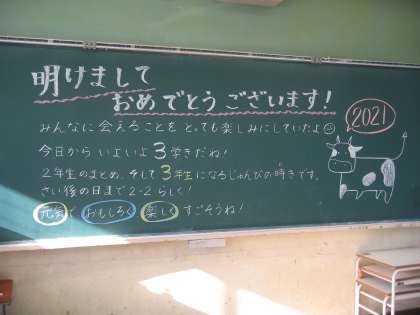 明けまして
おめでとうございます!
2021
みんなに会えることをとっても楽しみにしていたよ☺
今日からいよいよ3学きだね!
2年生のまとめ、そして3年生になるじゅんびの時きです。
さい後の日まで2-2らしく!
元気で おもしろく 楽しく すごそうね!